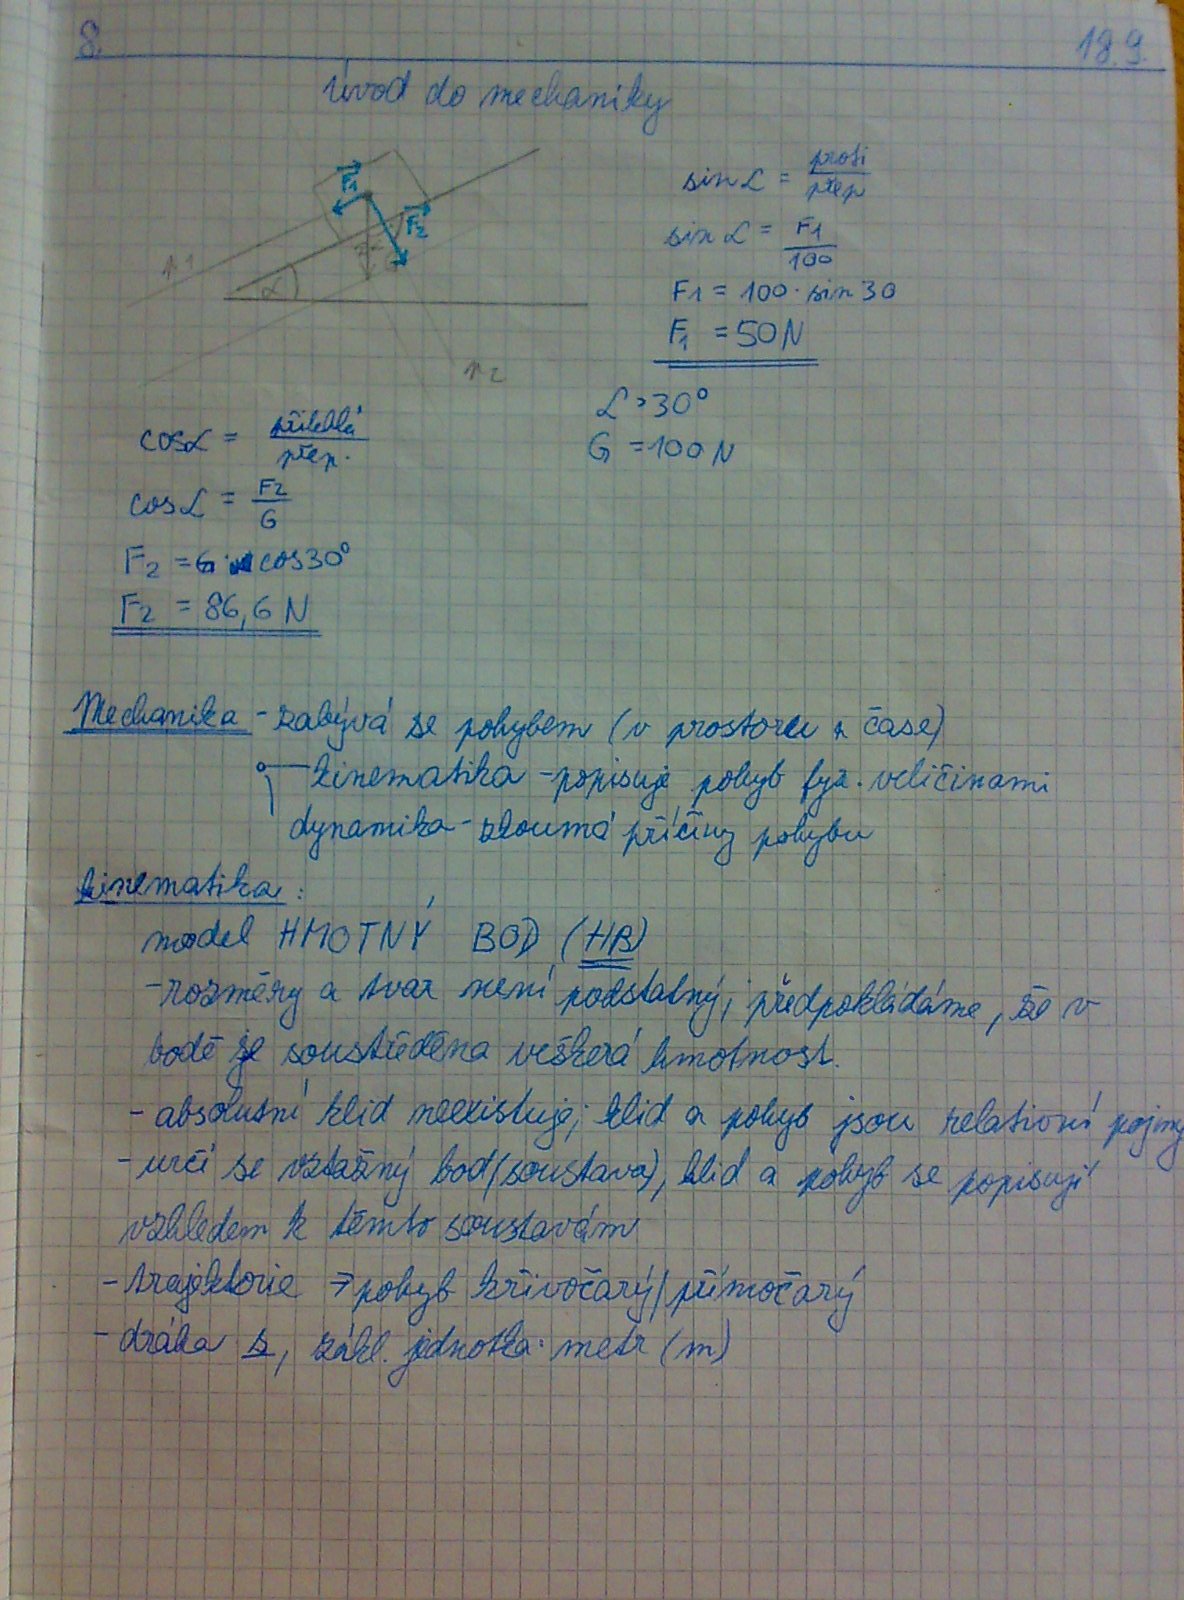 8 18.9.
Úvod do mechaniky
F1
F2
α
G
p1
p2
sin α = proti / přep
sin α = F1 / 100
F1 = 100 · sin 30
F1 = 50 N
α = 30°
G = 100 N
cos α = přilehlá / přep.
cos α = F2 / G
F2 = G · cos 30°
F2 = 86,6 N
Mechanika - zabývá se pohybem (v prostoru a čase)
kinematika - popisuje pohyb fyz. veličinami
dynamika - zkoumá příčiny pohybu
kinematika:
model HMOTNÝ BOD (HB)
- rozměry a tvar není podstatný, předpokládáme, že v
bodě je soustředěna veškerá hmotnost.
- absolutní klid neexistuje; klid a pohyb jsou relativní pojmy
- určí se vztažný bod (soustava), klid a pohyb se popisují
vzhledem k těmto soustavám
- trajektorie → pohyb křivočarý / přímočarý
- dráha s, zákl. jednotka: metr (m)